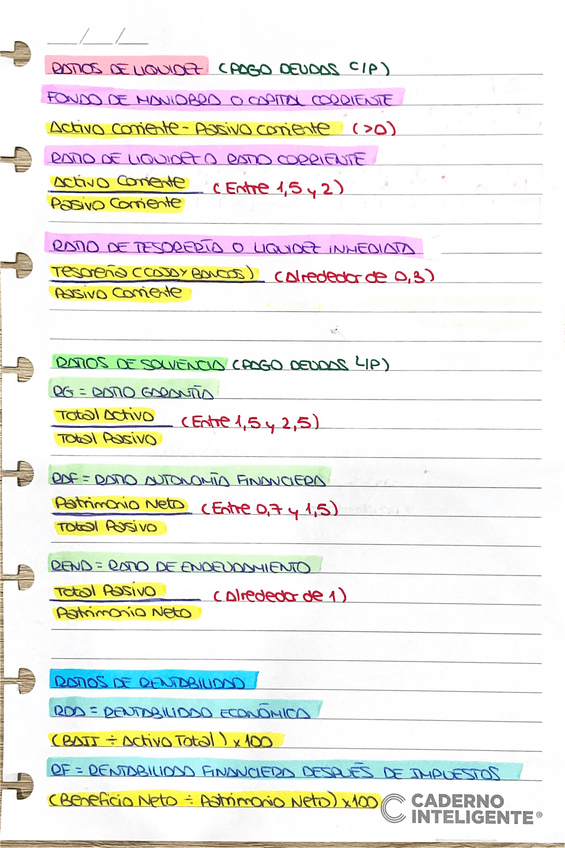 __/__/__
RATIOS DE LIQUIDEZ (PAGO DEUDAS C/P)
FONDO DE MANIOBRA O CAPITAL CORRIENTE
Activo Corriente - Pasivo corriente (>0)
RATIO DE LIQUIDEZ O RATIO CORRIENTE
Activo Corriente (Entre 1,5 y 2)
Pasivo Corriente
RATIO DE TESORERÍA O LIQUIDEZ INMEDIATA
Tesorería (CAJA Y BANCOS) (Alrededor de 0,3)
Pasivo Corriente
RATIOS DE SOLVENCIA (PAGO DEUDAS L/P)
RG = RATIO GARANTÍA
Total Activo (Entre 1,5 y 2,5)
Total Pasivo
RAF = RATIO AUTONOMÍA FINANCIERA
Patrimonio Neto (Entre 0,7 y 1,5)
Total Pasivo
REND = RATIO DE ENDEUDAMIENTO
Total Pasivo (Alrededor de 1)
Patrimonio Neto
RATIOS DE RENTABILIDAD
ROA = RENTABILIDAD ECONÓMICA
(BAII ÷ Activo Total) x 100
RF = RENTABILIDAD FINANCIERA DESPUÉS DE IMPUESTOS
(Beneficio Neto ÷ Patrimonio Neto) x 100
CADERNO
INTELIGENTE®